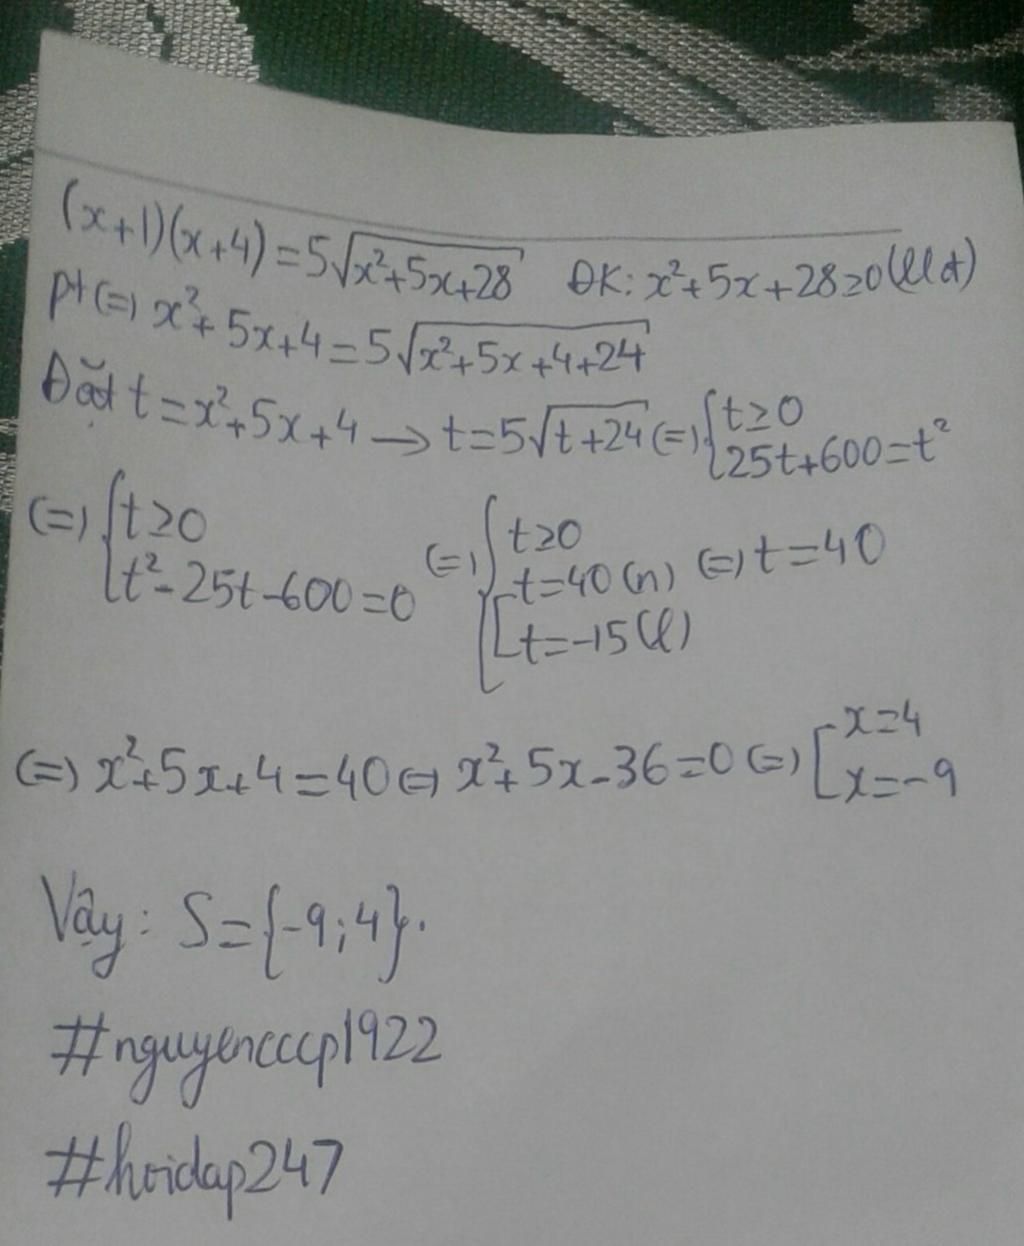 (x+1)(x+4)=5√(x²+5x+28) ĐK: x²+5x+28≥0(lđ)
pt(=) x²+5x+4=5√(x²+5x+4+24)
Đặt t=x²+5x+4→t=5√(t+24)(=){t≥0
25t+600=t²
(=){t≥0
t²-25t-600=0
(=){t≥0
[t=40(n)
t=-15(l)
(=)t=40
(=) x²+5x+4=40(=) x²+5x-36=0(=)[x=4
x=-9
Vậy: S={-9;4}.
#nguyencccp1922
#hoidap247